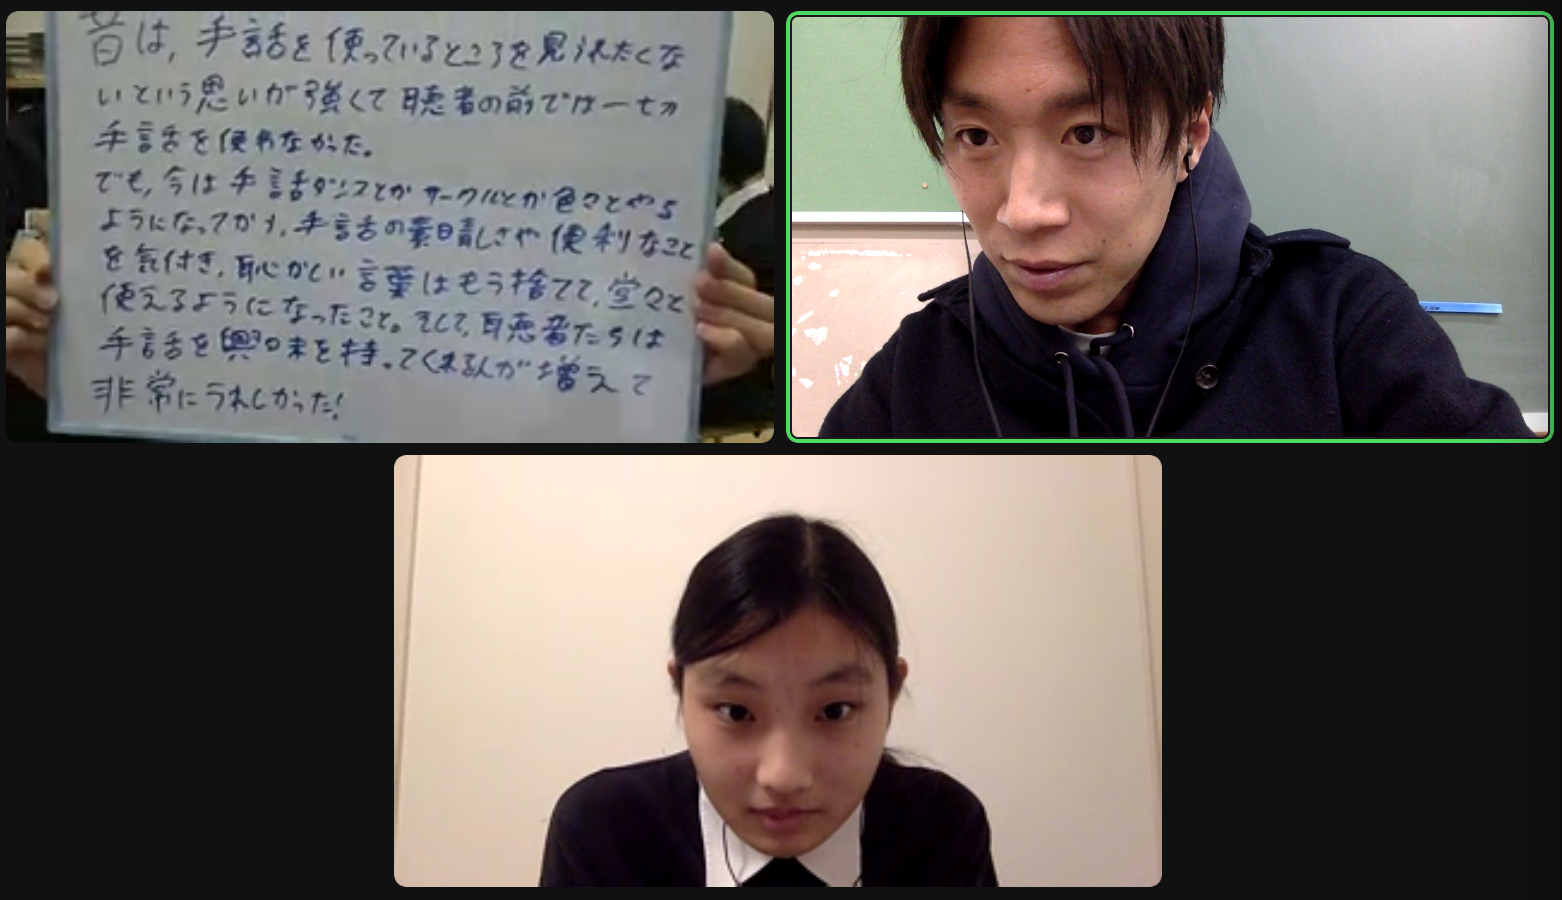 昔は，手話を使っているところを見られたくな
いという思いが強くて聴者の前では一切
手話を使わなかった。
でも，今は手話ダンスとかサークルとか色々とやる
ようになってから，手話の素晴しさや便利なこと
を気付き，恥かしい言葉はもう捨てて，堂々と
使えるようになったこと。そして，聴者たちは
手話を興味を持ってくれる人が増えて
非常にうれしかった！